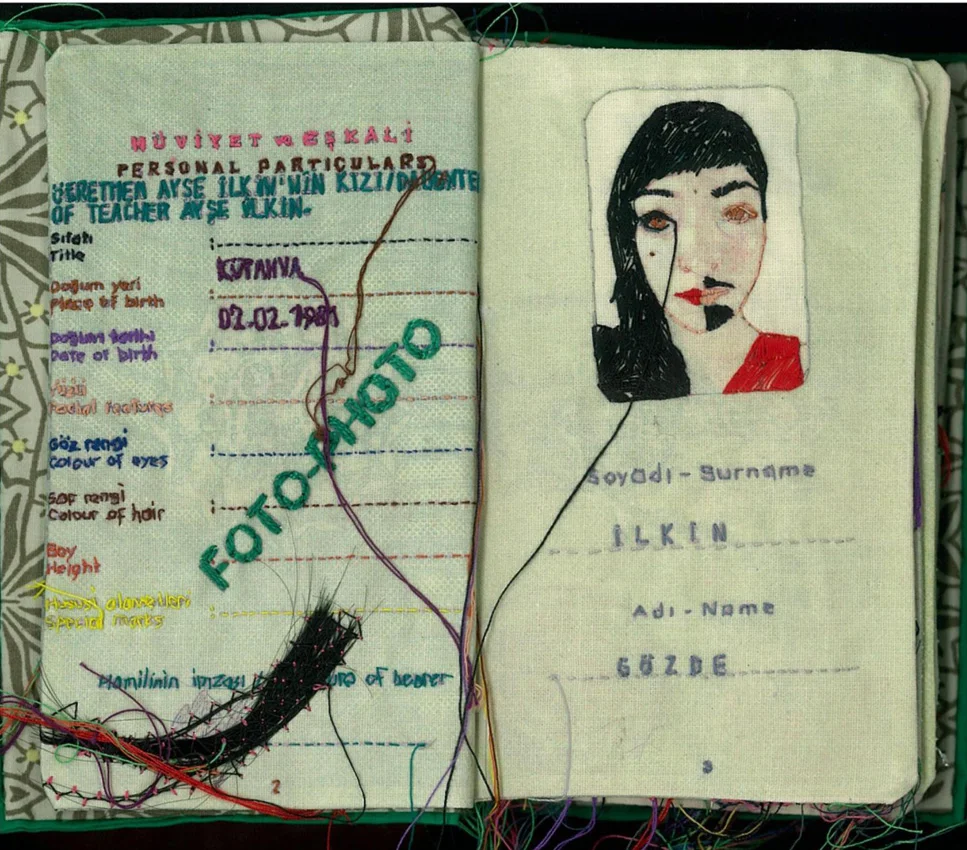 HÜVİYET ve EŞKALİ
PERSONAL PARTICULARS
AYŞE İLKİN'NİN KIZI/DAUGHTE
OF TEACHER AYŞE İLKİN.
Sıfatı
Title
KÜTAHYA
Doğum yeri
Place of birth
02-02-1981
Doğum tarihi
Date of birth
Facial features
FOTO-PHOTO
Göz rengi
Colour of eyes
Saç rengi
Colour of hair
Boy
Height
Hususi alametleri
Special marks
Hamilinin imzası of bearer
2
Soyadı - Surname
İLKİN
Adı - Name
GÖZDE
3